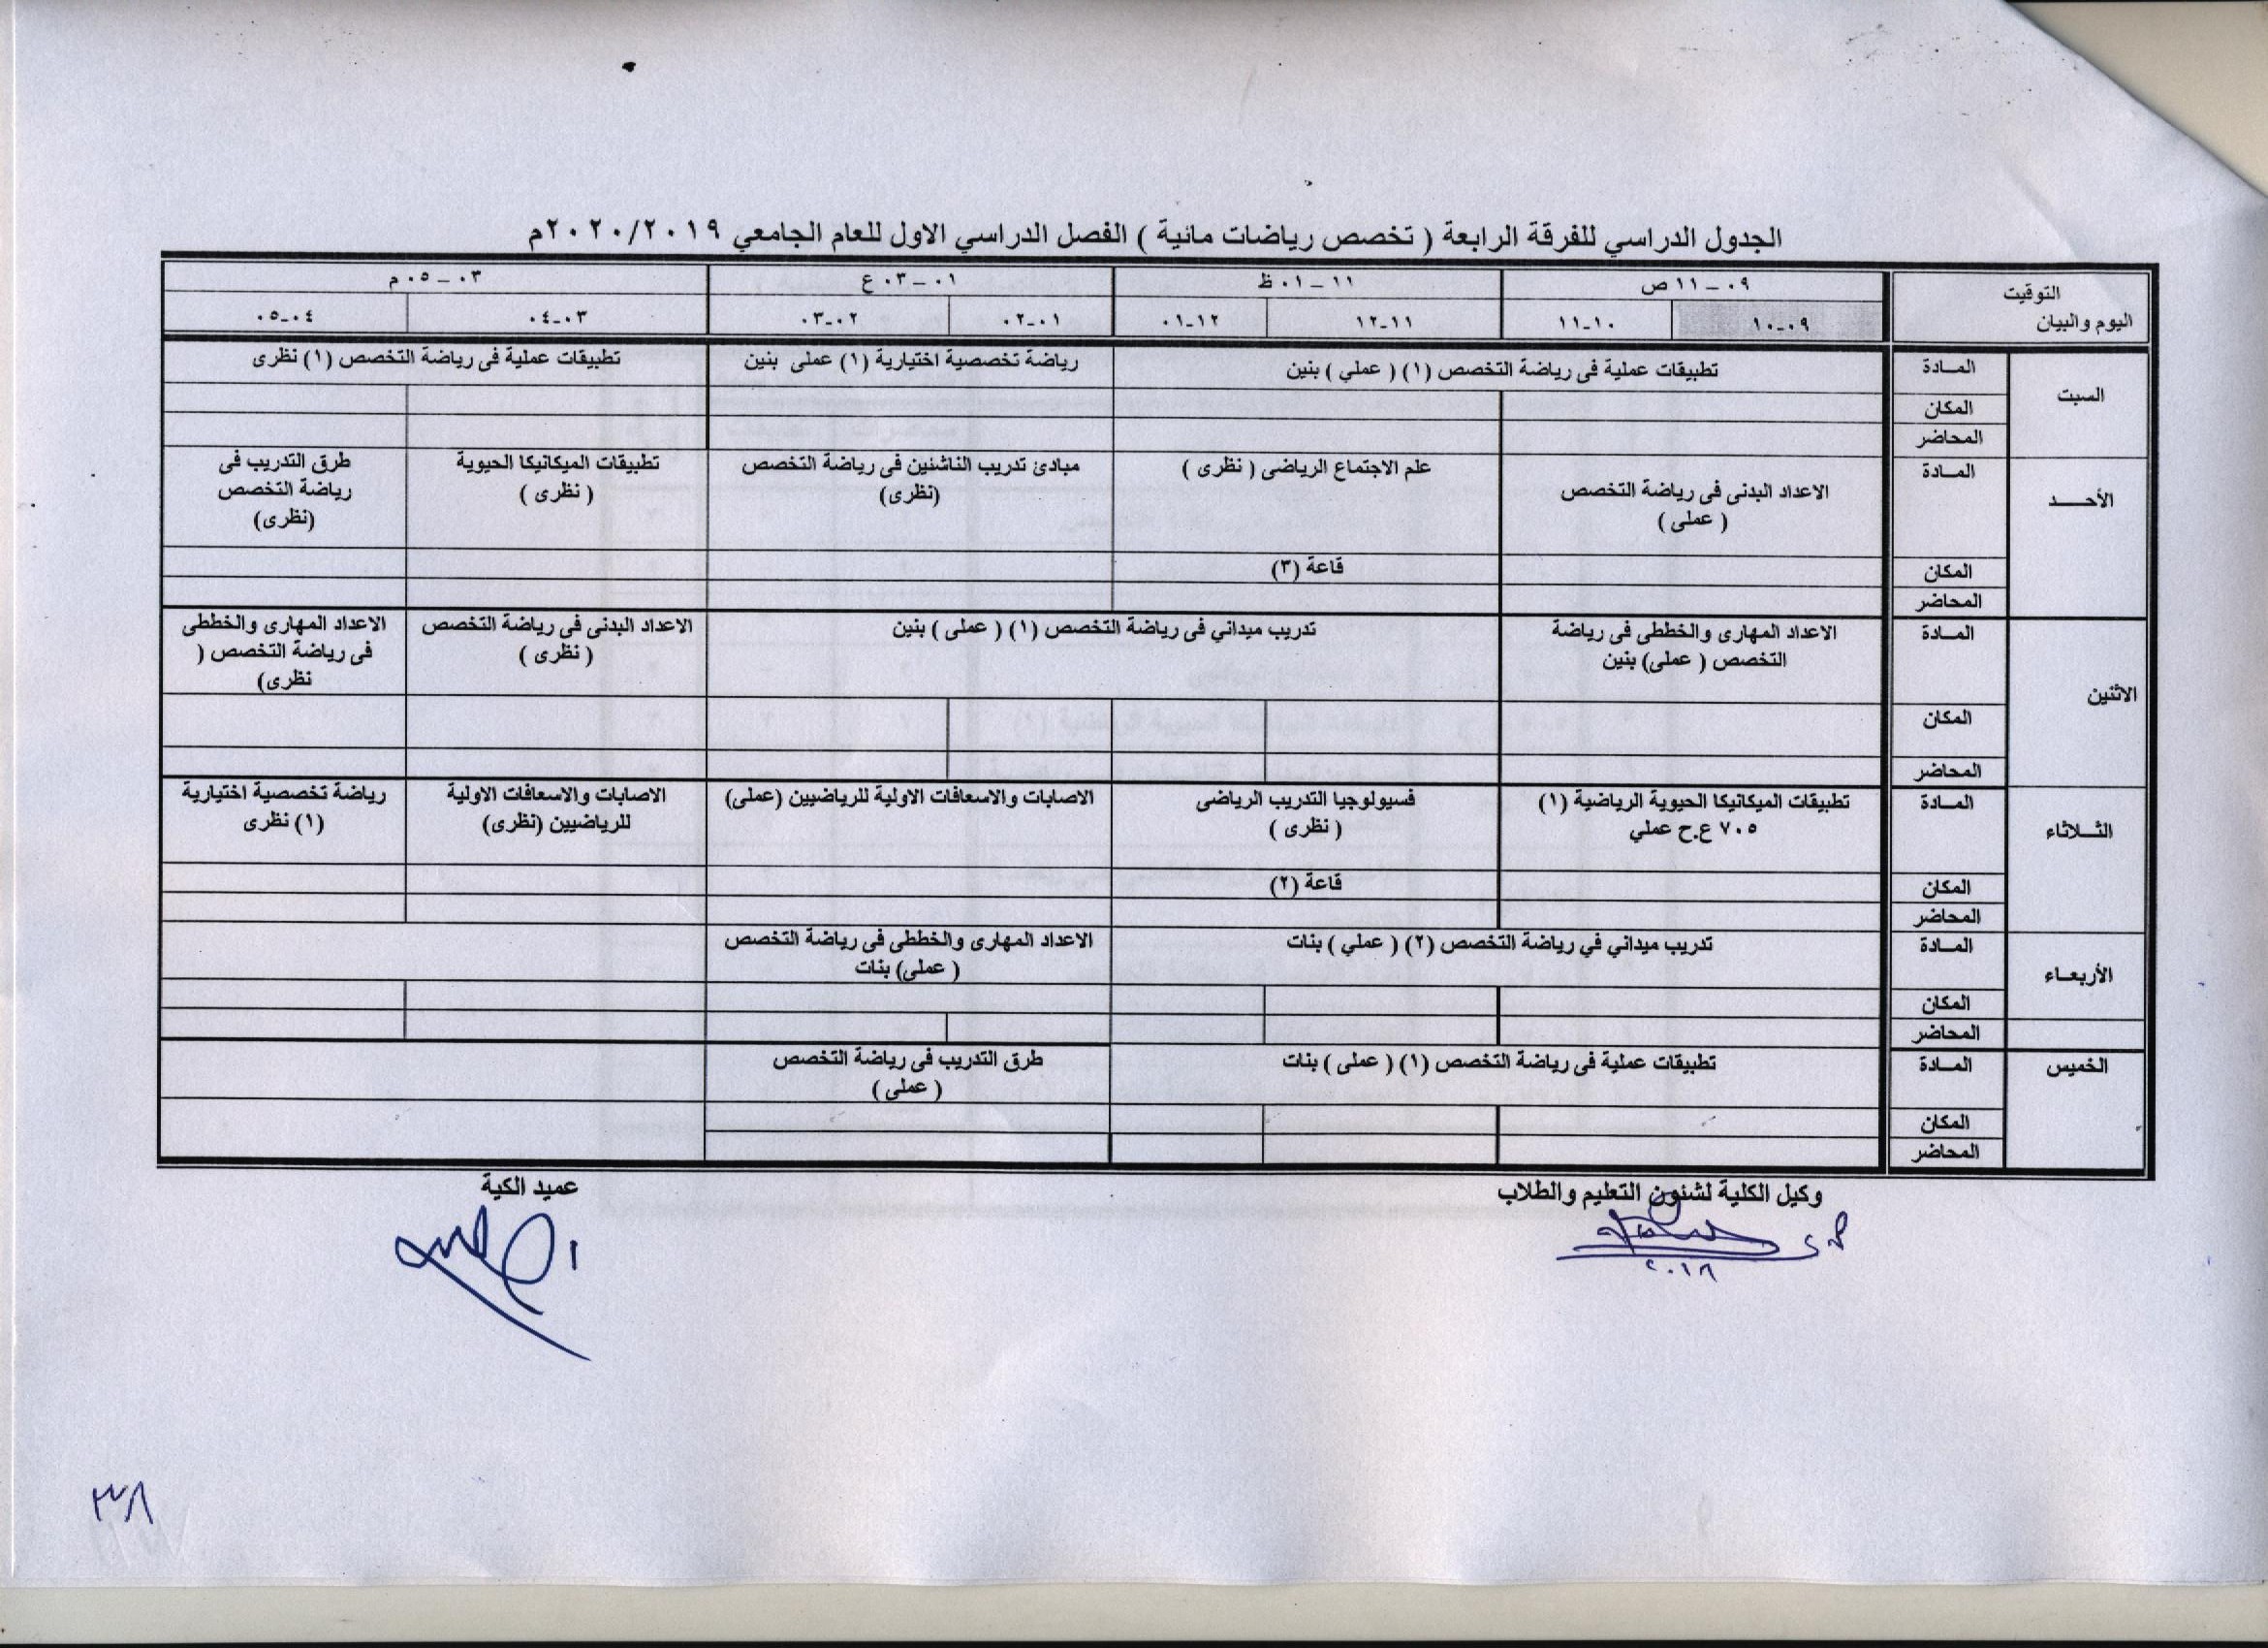 الجدول الدراسي للفرقة الرابعة ( تخصص رياضات مائية ) الفصل الدراسي الاول للعام الجامعي ٢٠٢٠/٢٠١٩م
التوقيت
اليوم والبيان
٠٩ – ١١ ص
١١ – ٠١ ظ
٠١ – ٠٣ ع
٠٣ – ٠٥ م
٠٩-١٠
١٠-١١
١١-١٢
١٢-٠١
٠١-٠٢
٠٢-٠٣
٠٣-٠٤
٠٤-٠٥
السبت
المـــادة
تطبيقات عملية فى رياضة التخصص (١) ( عملي ) بنين
رياضة تخصصية اختيارية (١) عملى بنين
تطبيقات عملية فى رياضة التخصص (١) نظرى
المكان
المحاضر
الأحـــــد
المـــادة
الاعداد البدنى فى رياضة التخصص
( عملى )
علم الاجتماع الرياضى ( نظرى )
مبادئ تدريب الناشئين فى رياضة التخصص
(نظرى)
تطبيقات الميكانيكا الحيوية
( نظرى )
طرق التدريب فى
رياضة التخصص
(نظرى)
المكان
قاعة (٣)
المحاضر
الاثنين
المـــادة
الاعداد المهارى والخططى فى رياضة
التخصص ( عملى) بنين
تدريب ميداني فى رياضة التخصص (١) ( عملى ) بنين
الاعداد البدنى فى رياضة التخصص
( نظرى )
الاعداد المهارى والخططى
فى رياضة التخصص (
نظرى)
المكان
المحاضر
الثـــلاثاء
المـــادة
تطبيقات الميكانيكا الحيوية الرياضية (١)
٧٠٥ ع.ح عملي
فسيولوجيا التدريب الرياضى
( نظرى )
الاصابات والاسعافات الاولية للرياضيين (عملى)
الاصابات والاسعافات الاولية
للرياضيين (نظرى)
رياضة تخصصية اختيارية
(١) نظرى
المكان
قاعة (٢)
المحاضر
الأربعـــاء
المـــادة
تدريب ميداني في رياضة التخصص (٢) ( عملي ) بنات
الاعداد المهارى والخططى فى رياضة التخصص
( عملى) بنات
المكان
المحاضر
الخميس
المـــادة
تطبيقات عملية فى رياضة التخصص (١) ( عملى ) بنات
طرق التدريب فى رياضة التخصص
( عملى )
المكان
المحاضر
وكيل الكلية لشئون التعليم والطلاب
عميد الكية
٣٨